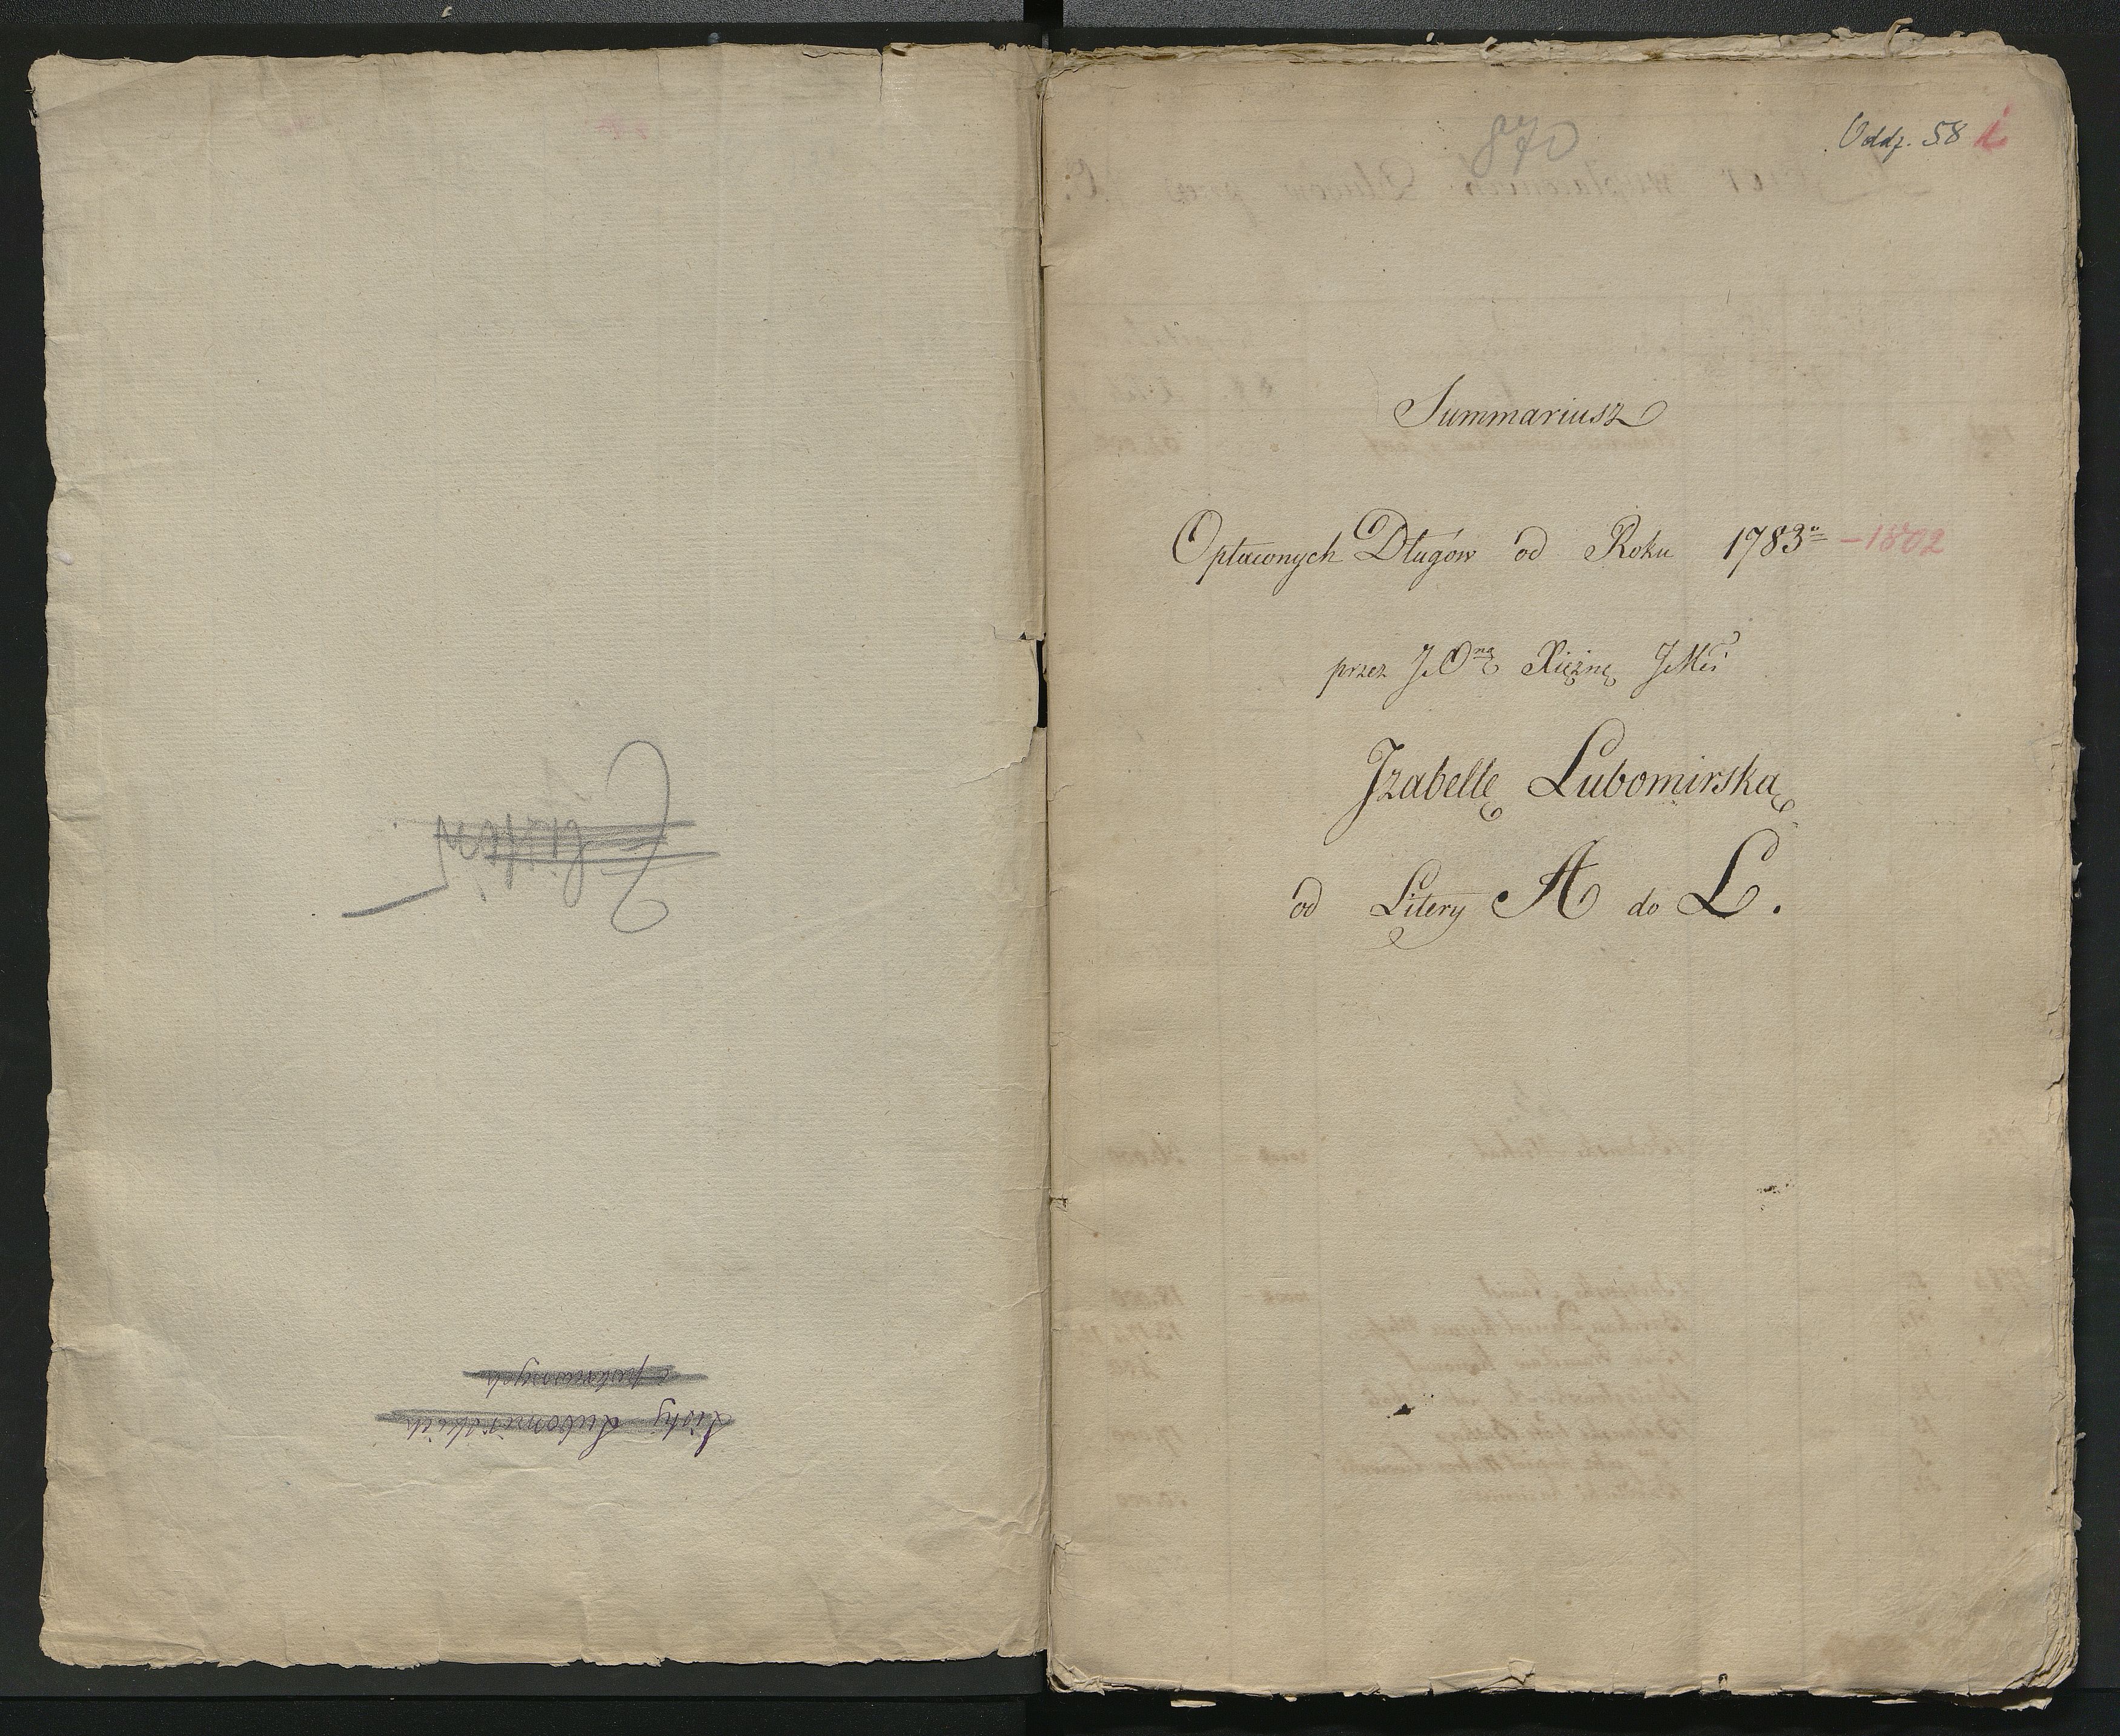 Listy Lubomirskich
870
Oddz. 58 i
Summariusz
Opłaconych Długów od Roku 1783º - 1802
przez J.Oną Xiężnę JMść
Jzabellę Lubomirską
od Litery A do L.